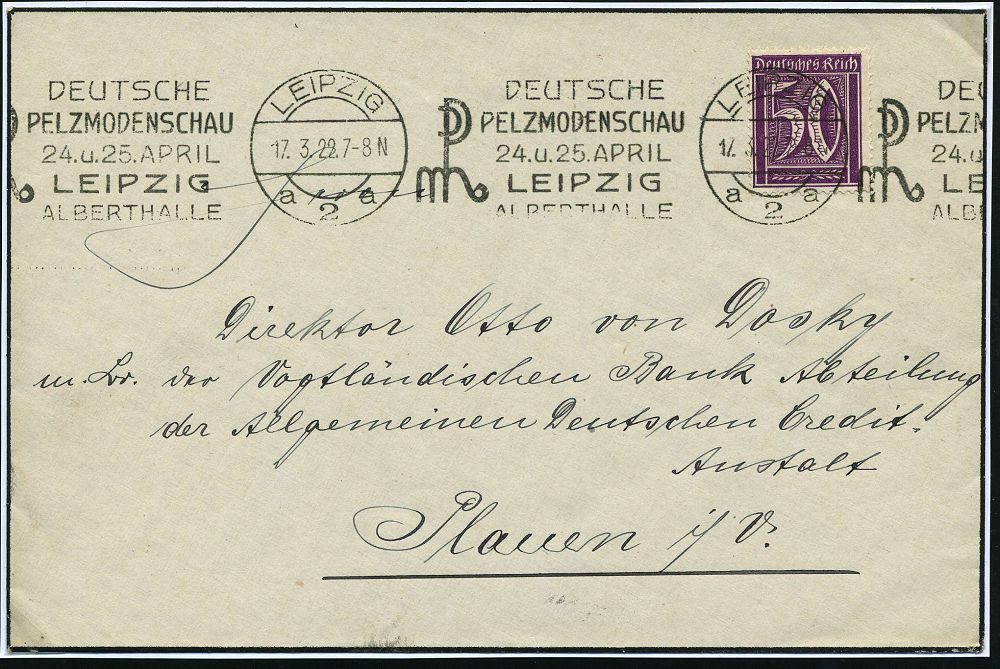 DEUTSCHE
PELZMODENSCHAU
24.u.25.APRIL
LEIPZIG
ALBERTHALLE
LEIPZIG
17. 3. 22. 7-8 N
a 2 a
DEUTSCHE
PELZMODENSCHAU
24.u.25.APRIL
LEIPZIG
ALBERTHALLE
Deutsches Reich
50
LEIPZ
17. 3.
a 2 a
DEU
PELZM
24.u
LE
ALBE
Direktor Otto von Dosky
der Vogtländischen Bank Abteilung
der Allgemeinen Deutschen Credit-
Anstalt
Plauen i/V.